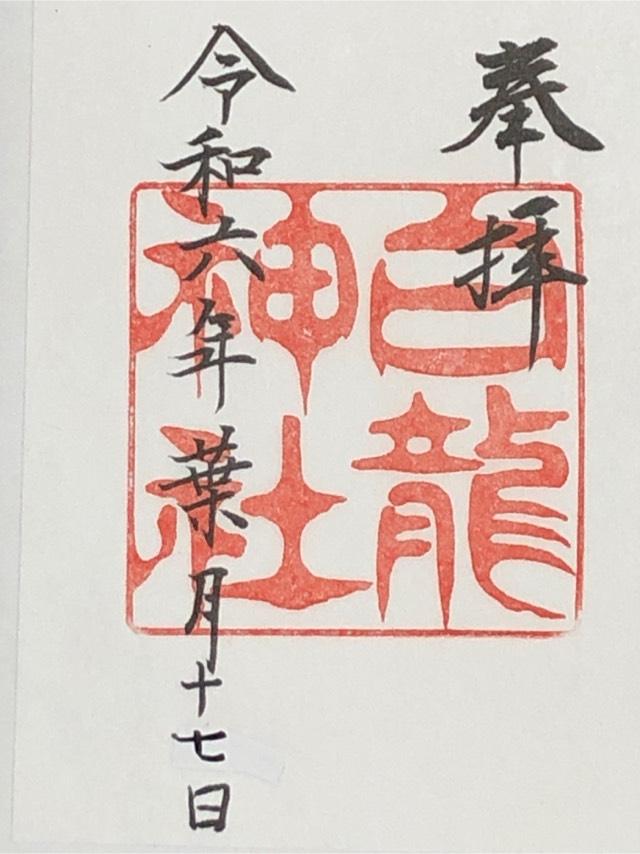 奉拝
白龍
神社
令和六年葉月十七日